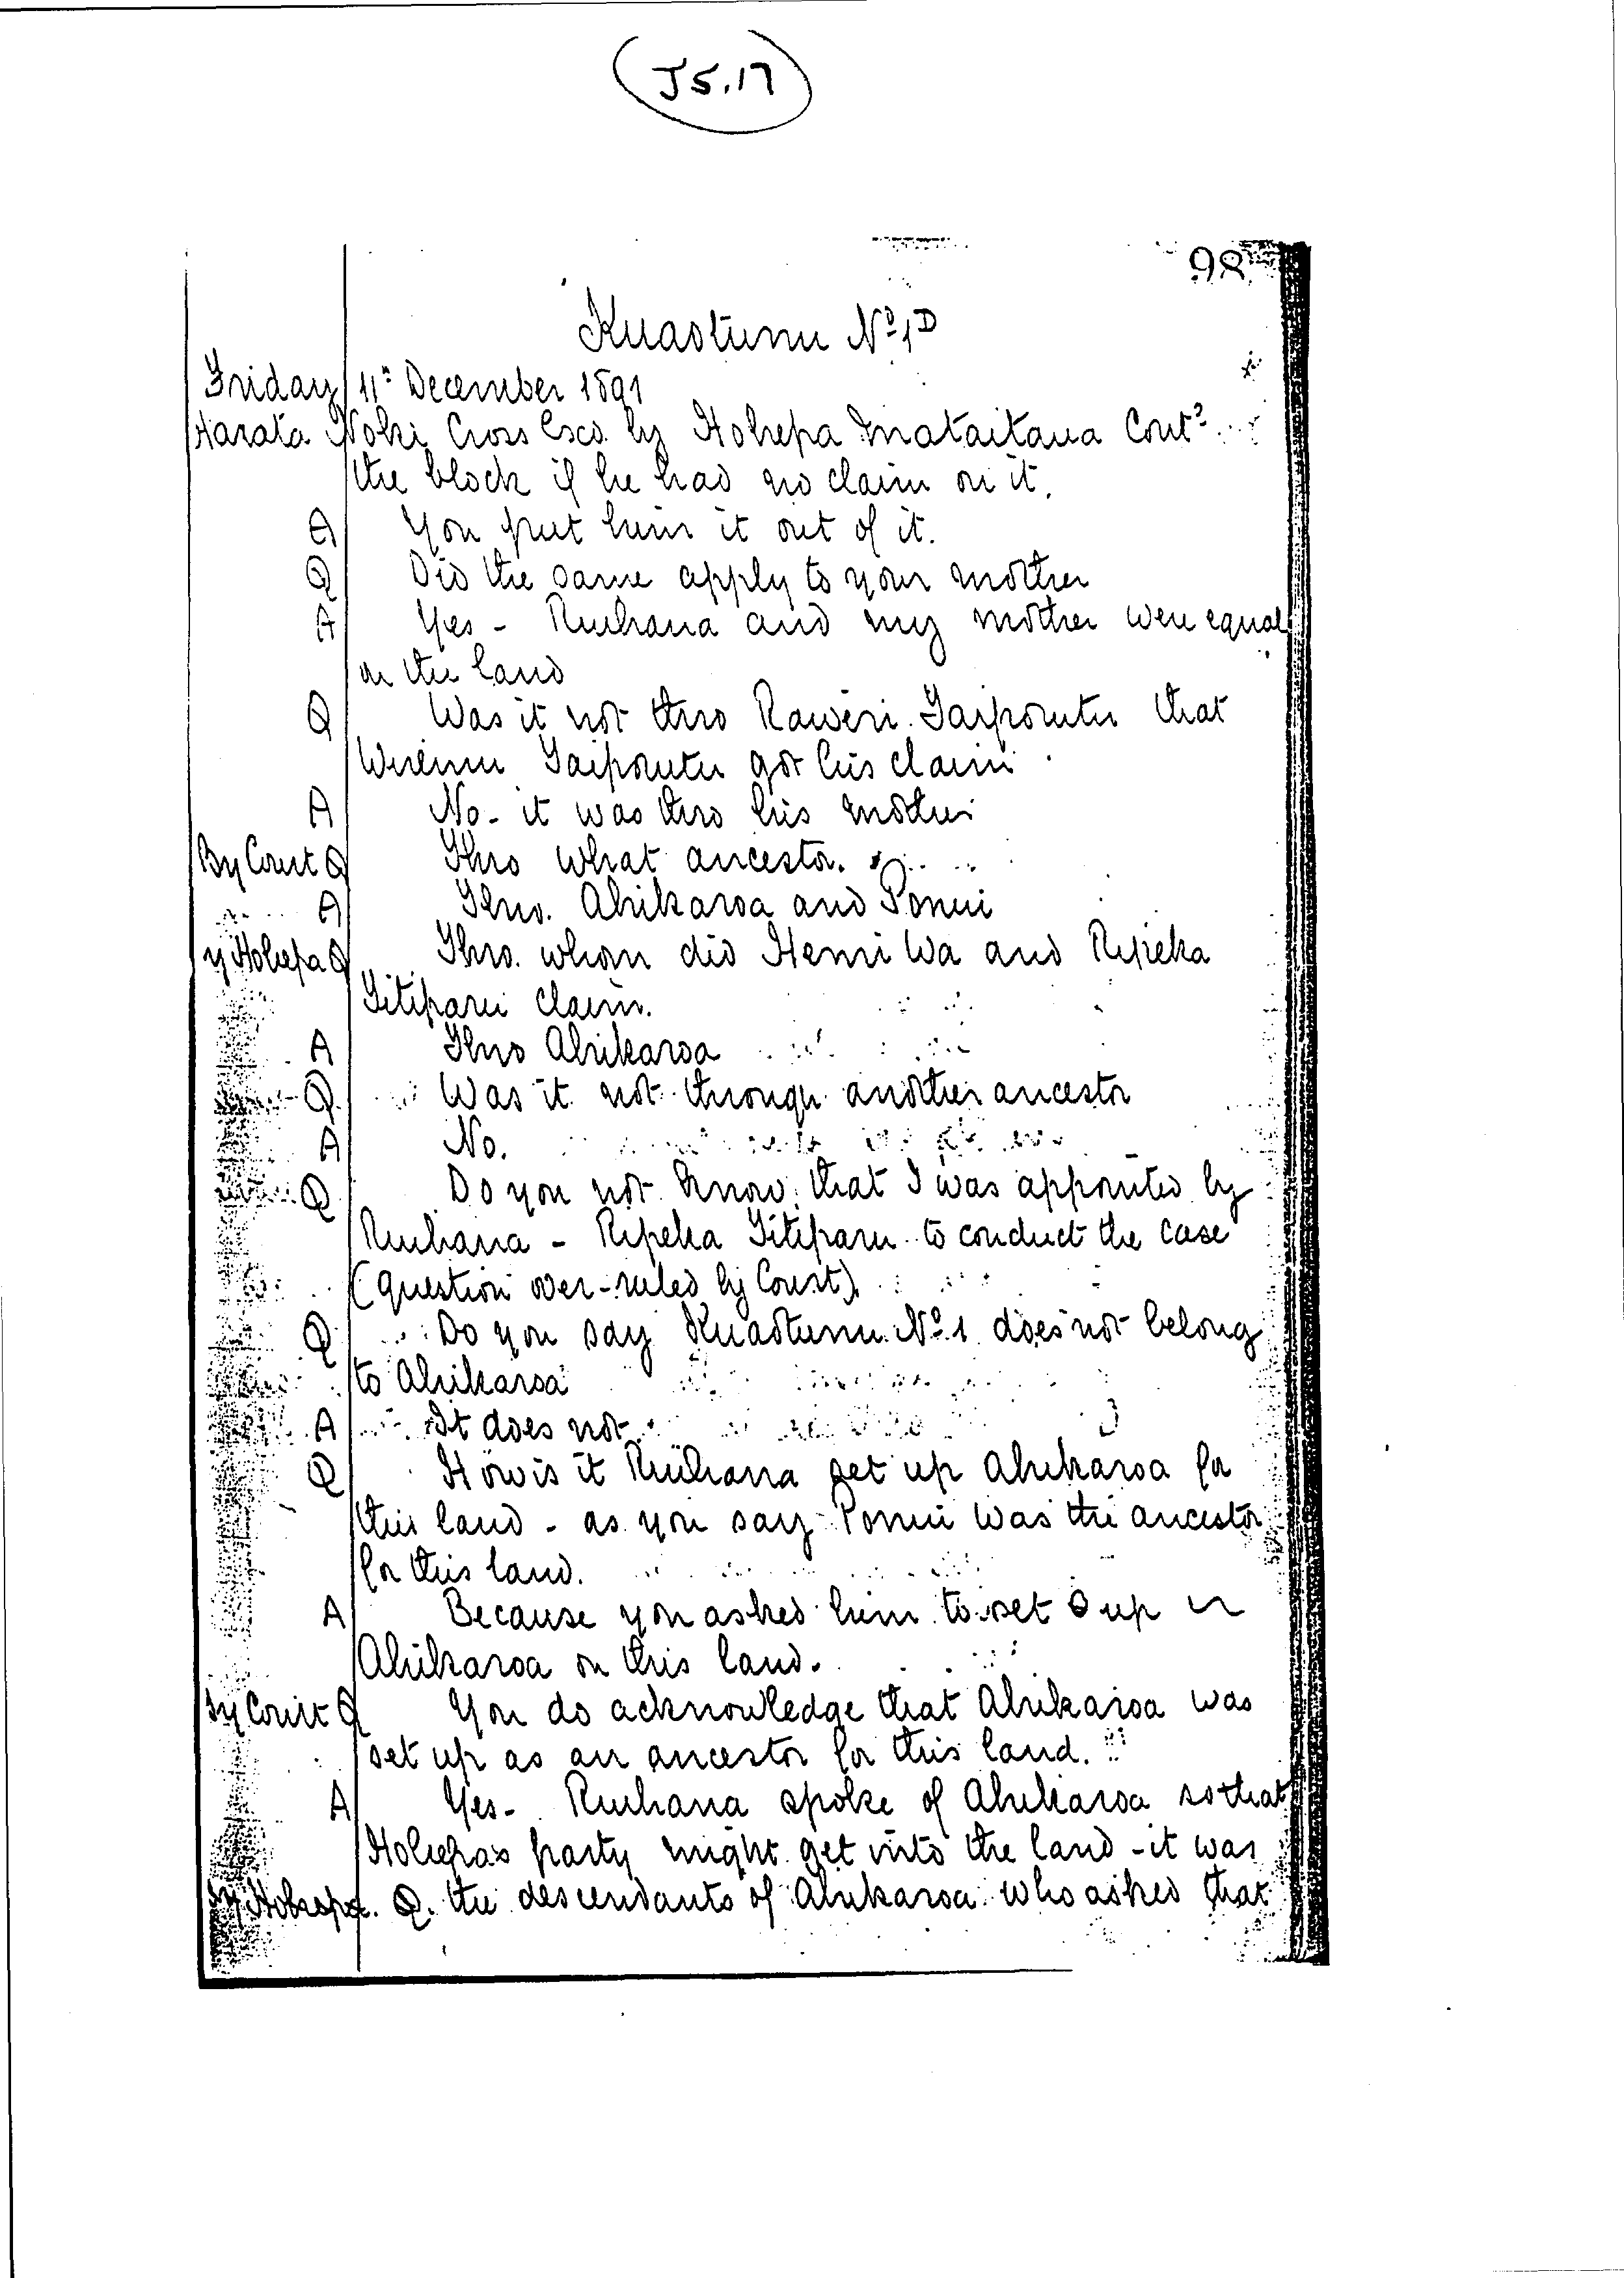 J5.17
98
Kuaotunu No 1D
Friday 11th December 1891
Harata Noki Cross Exd. by Hohepa Mataitaua Contd
the block if he had no claim on it.
A You put him it out of it.
Q Did the same apply to your mother
A Yes - Ruihana and my mother were equal
on the land
Q Was it not thro Raweri Taiporutu that
Wiremu Taiporutu got his claim
A No - it was thro his mother
By Court Q Thro what ancestor.
A Thro. Ahikaroa and Ponui
y Hohepa Q Thro. whom did Hemi Wa and Ripeka
Titiparu claim.
A Thro Ahikaroa
Q Was it not through another ancestor
A No.
Q Do you not know that I was appointed by
Ruihana - Ripeka Titiparu to conduct the case
(question over-ruled by Court)
Q Do you say Kuaotunu No. 1 does not belong
to Ahikaroa
A It does not
Q How is it Ruihana set up Ahikaroa for
this land - as you say Ponui was the ancestor
for this land.
A Because you asked him to set up
Ahikaroa on this land.
By Court Q You do acknowledge that Ahikaroa was
set up as an ancestor for this land.
A Yes - Ruihana spoke of Ahikaroa so that
Hohepa's party might get into the land - it was
By Hohepa. Q. the descendants of Ahikaroa who asked that